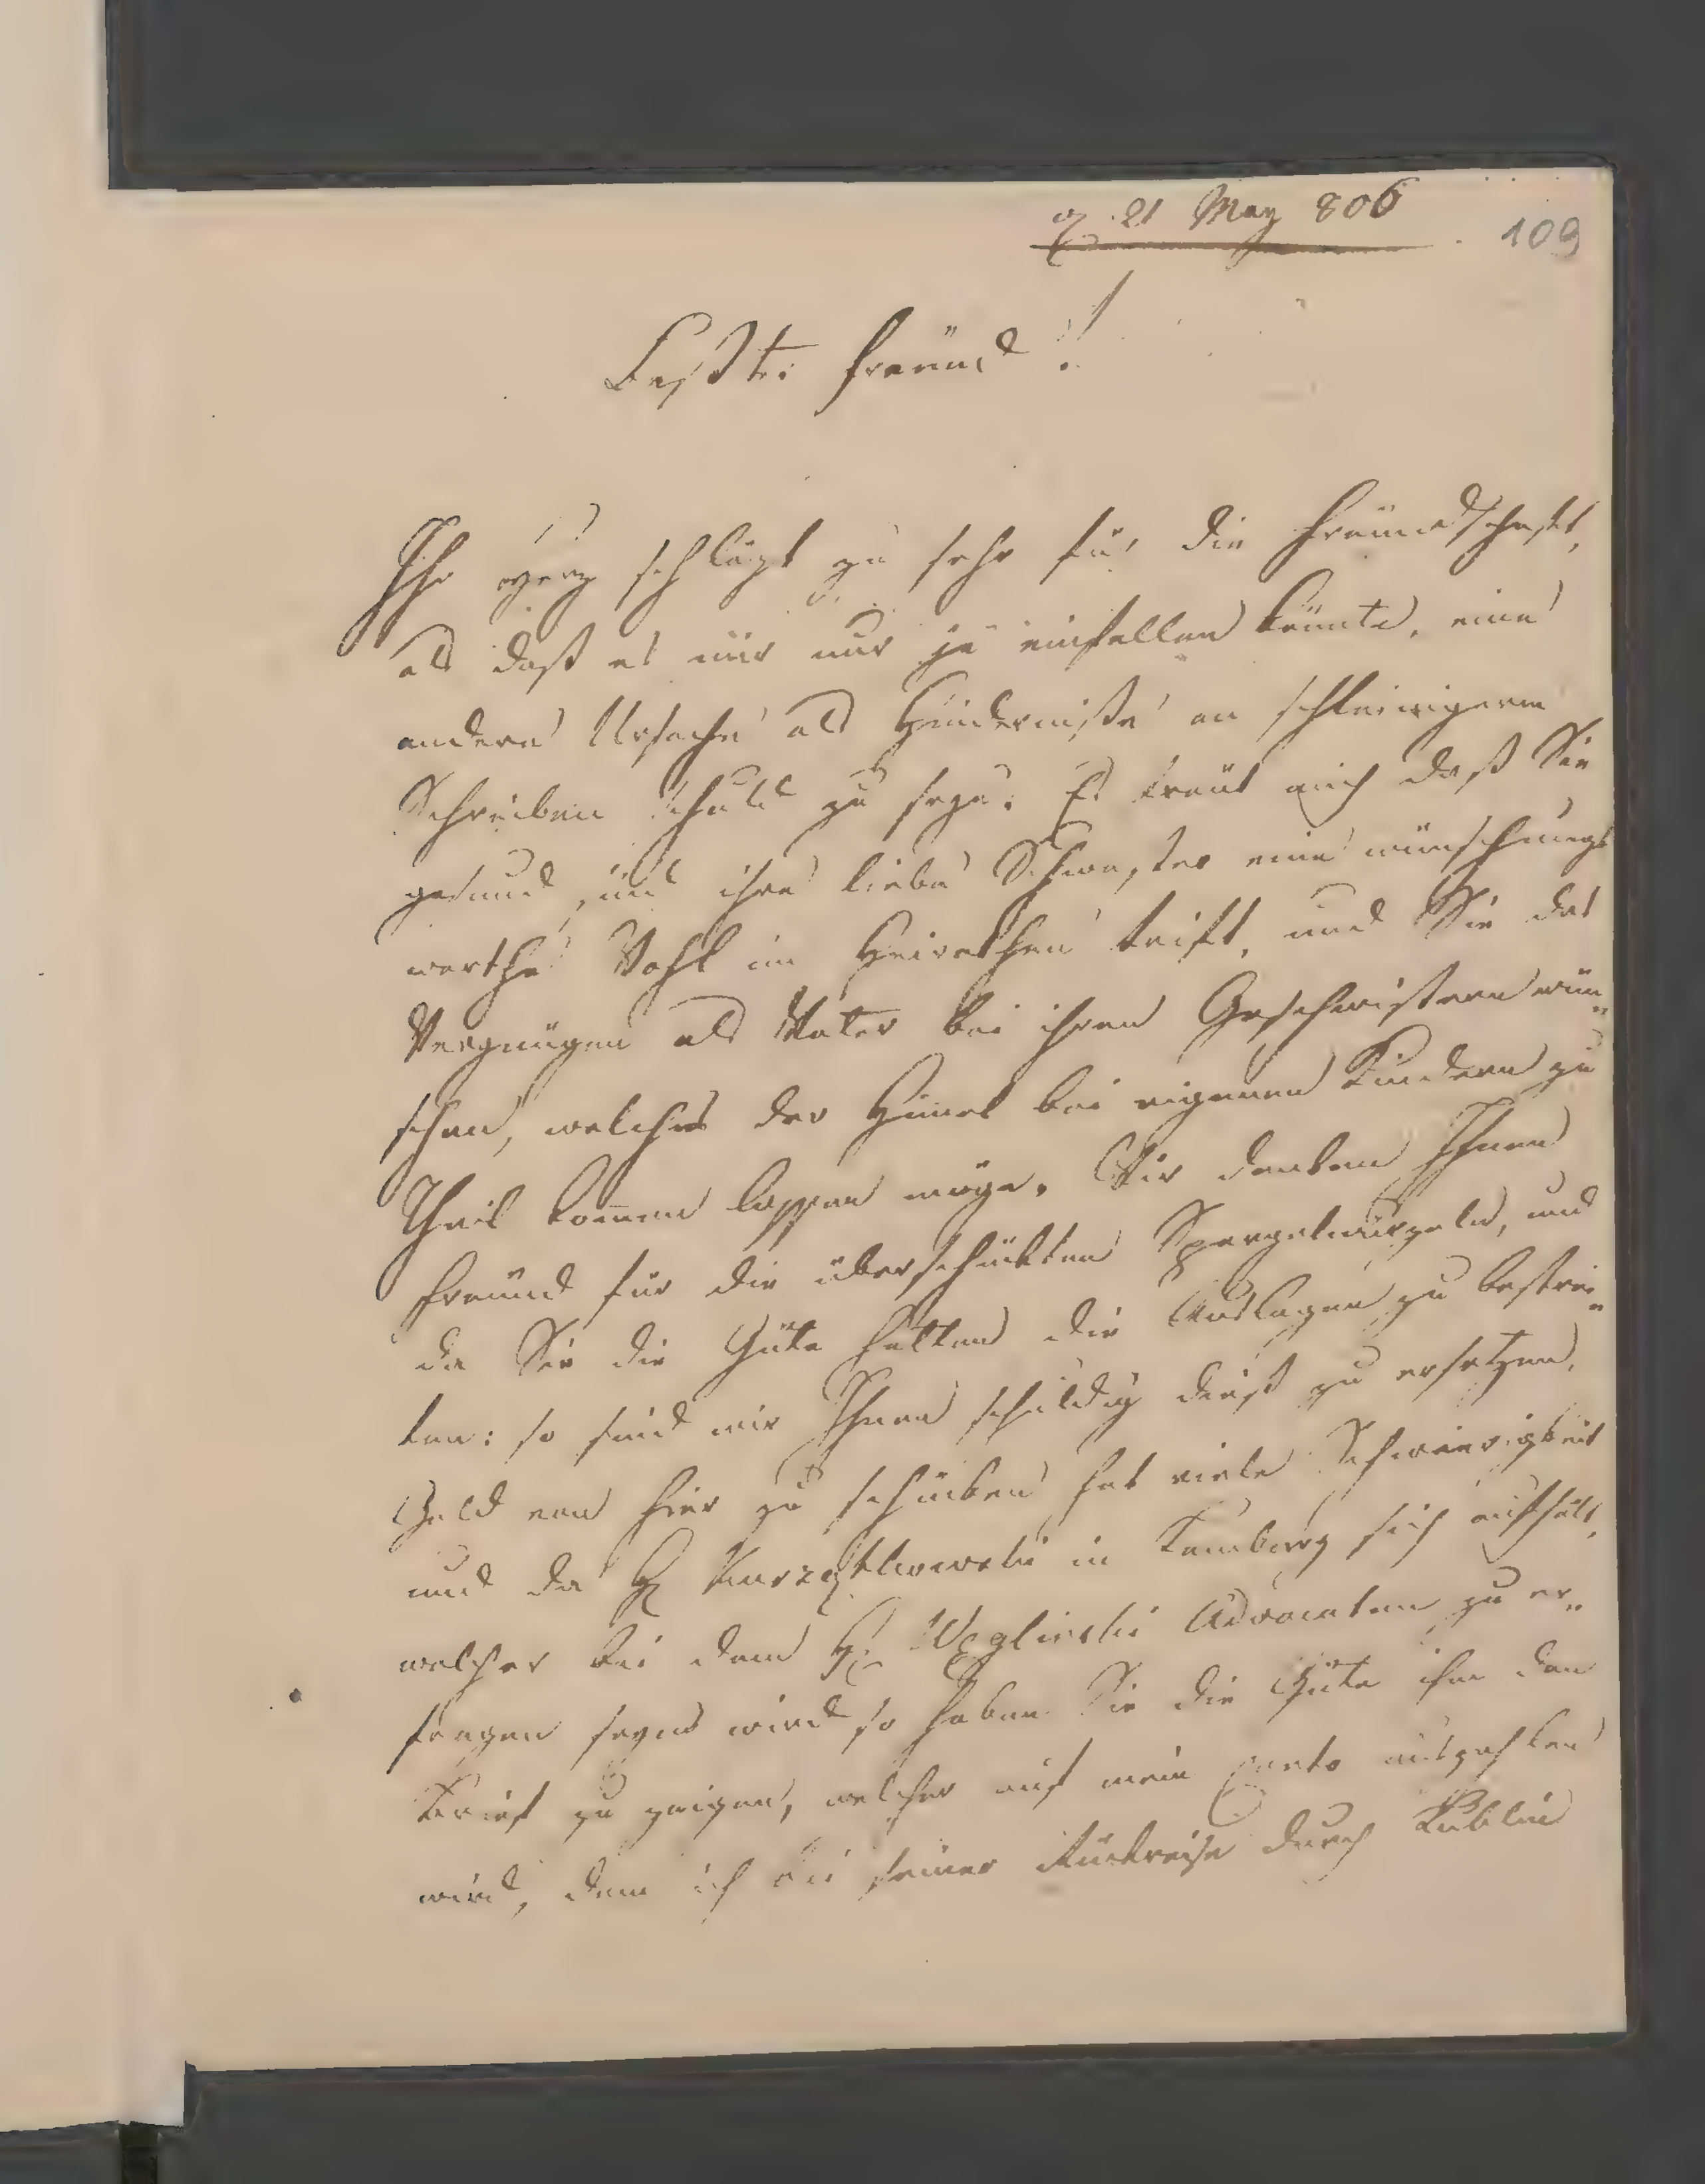 21 May 806
109
Beßter Freünd!
Ihr Herz schlägt zu sehr für die Freündschaft,
als daß es mir nur je einfallen könnte, eine
andere Ursache als Hinderniße an schleinigerem
Schreiben schuld zu seyn. Es freüt mich daß Sie
gesund, und ihre liebe Schwester eine wünschungs
werthe Wahl im Heirathen trift, und Sie das
Vergnügen als Vater bei ihren Geschwistern wün„
schen, welches der Himel bei eigenen Kindern zu
Theil komen lassen möge. Wir danken Ihnen
Freünd für die überschückten Spargelwürzeln, und
da Sie die Güte hatten die Auslagen zu bestrei„
ten: so sind wir Ihnen schuldig dieß zu ersetzen,
Geld von hier zu schücken hat viele Schwierigkeit
und da H Kurzątkowski in Lemberg sich aufhält,
welcher bei dem H. Węglinski Advocaten zu er„
fragen seyn wird so haben Sie die Güte ihm den
Brief zu zeigen, welcher auf mein Conto auszahlen
wird, dem ich bei seiner Rückreise durch Lublin